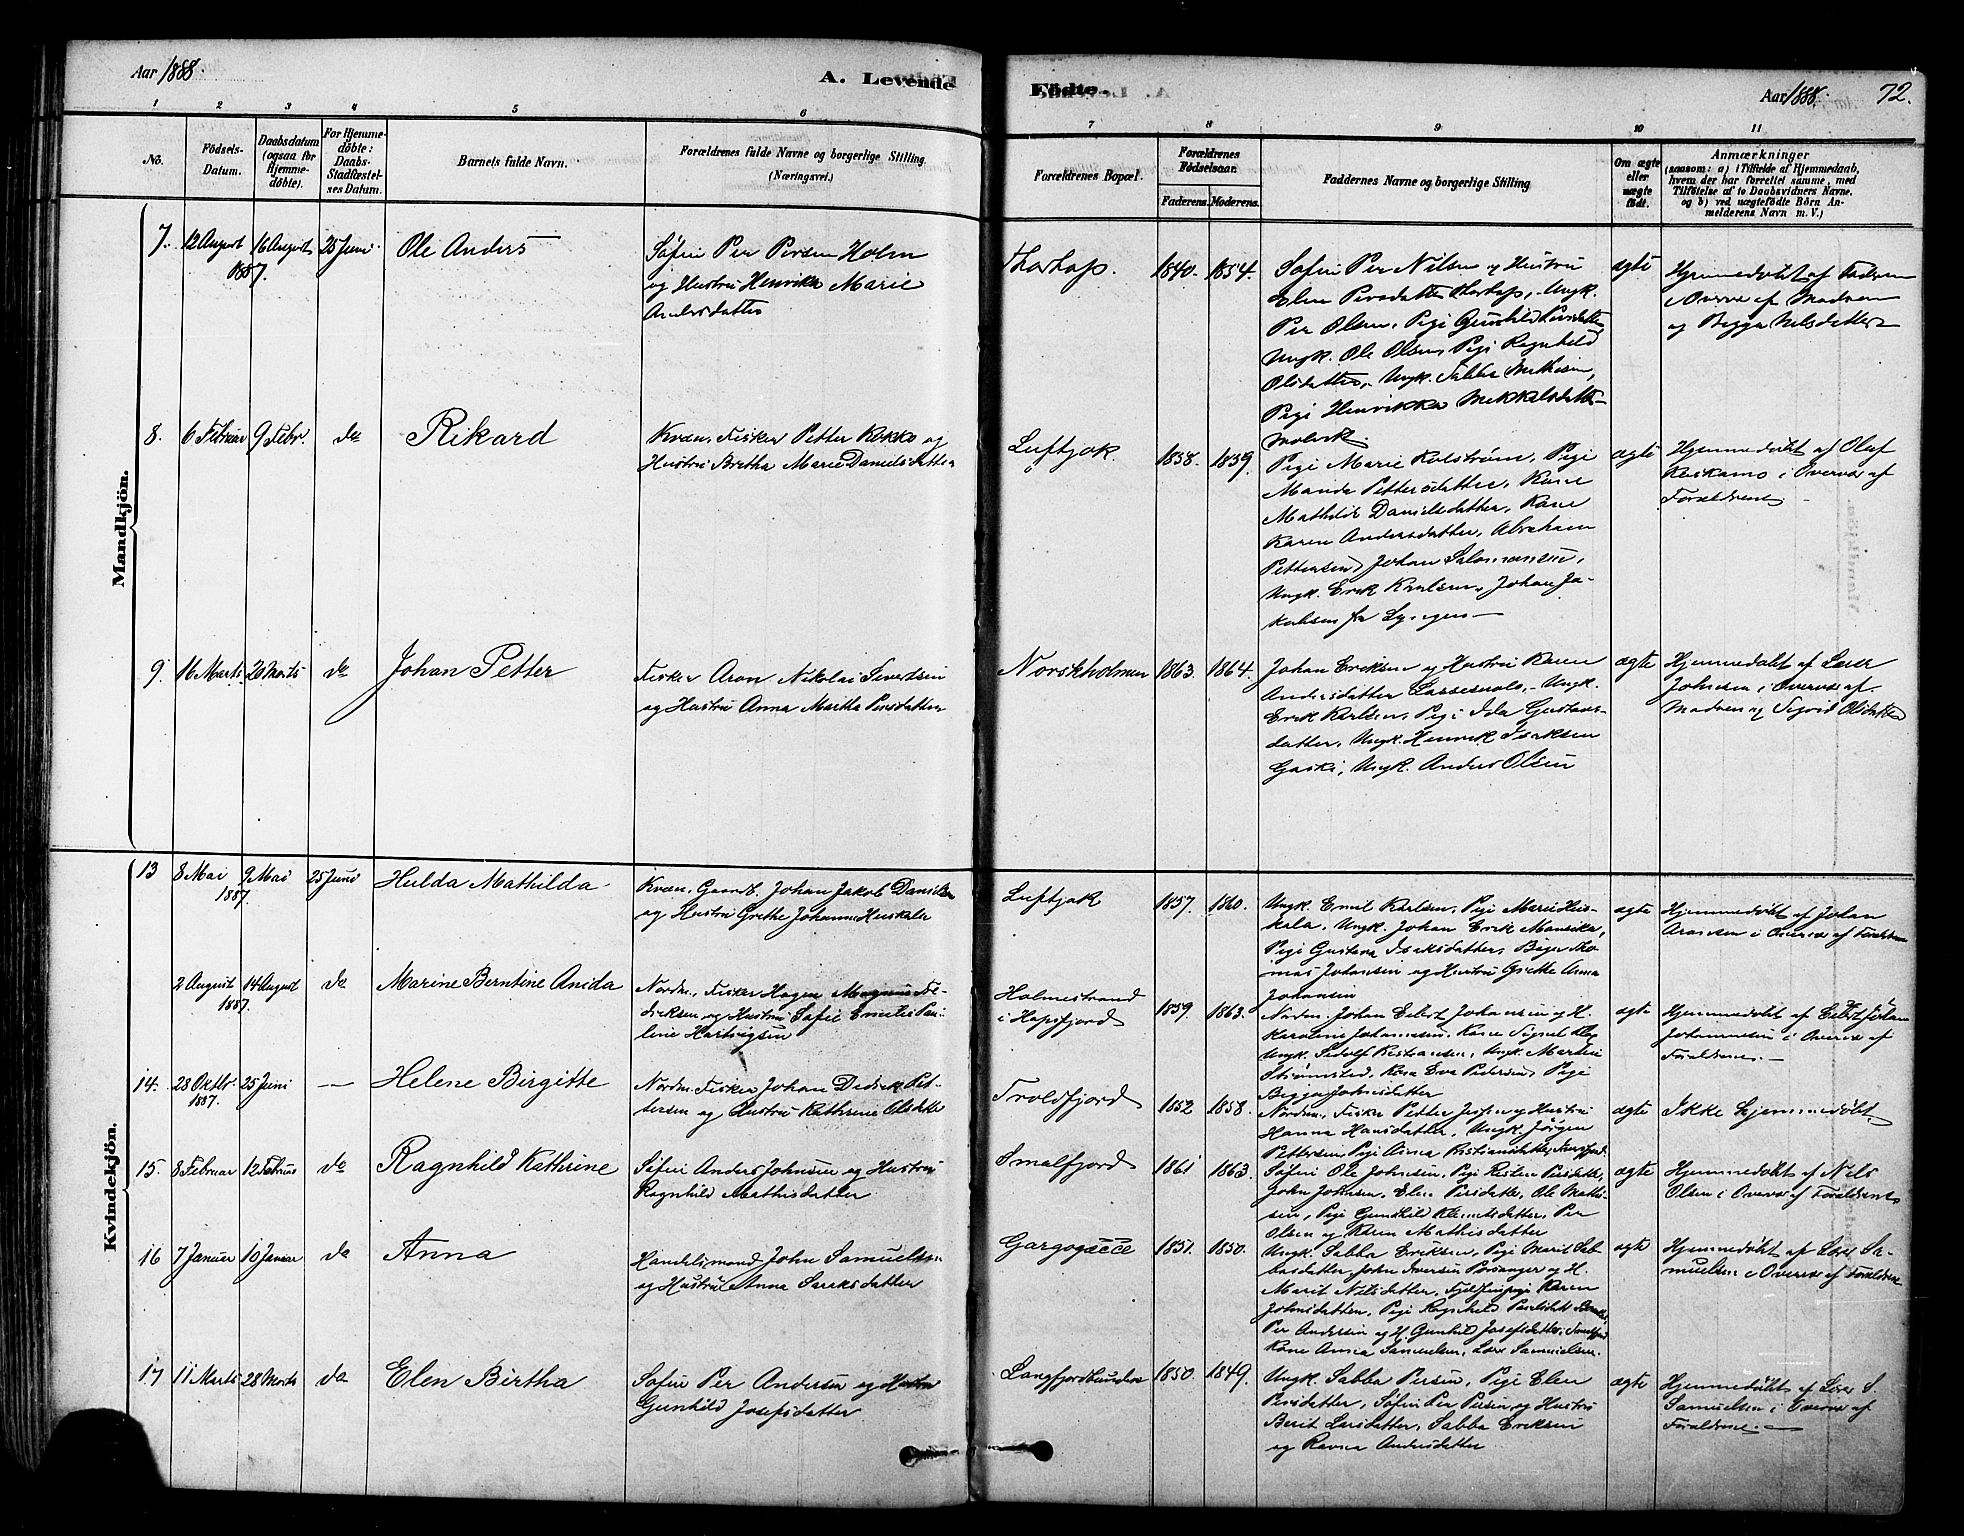 Aar 1888.
A. Levende
Födte.
Aar 1888.
72.
1 2 3 4 5 6 7 8 9 10 11
No.
Födsels-
Datum.
Daabsdatum
(ogsaa for
Hjemme-
döbte).
For Hjemme-
döbte:
Daabs-
Stadfæstel-
ses Datum.
Barnets fulde Navn.
Forældrenes fulde Navne og borgerlige Stilling.
(Næringsvei.)
Forældrenes Bopæl.
Forældrenes
Födselsaar.
Faderens. Moderens.
Faddernes Navne og borgerlige Stilling
Om ægte
eller
uægte
födt.
Anmærkninger
(saasom: a) i Tilfælde af Hjemmedaab,
hvem der har forrettet samme, med
Tilföielse af to Daabsvidners Navne.
og b) ved uægtefödte Börn An-
melderens Navn m. V.)
Mandkjön.
7.
12 August
1887.
16 August
25 Juni
Ole Anders
Søfin Per Persen Holm
og Hustru Henrikke Marie
Andersdatter
1840.
1854.
Søfin Per Nilsen og Hustru
Elen Persdatter Ungk.
Per Olsen, Pige Gunhild Persdatter
Ungk. Ole Olsen, Pige Ragnhild
Olsdatter, Ungk. Sabba Mathisen,
Pige Henrikke Mikkelsdatter
ægte
Hjemmedøbt af Faderen
i Overvær af Moderen
og Bigga Nilsdatter
8.
6 Februar
9 Febr.
do
Rikard
Kvæn, Fisker Petter Kokko og
Hustru Bretha Marie Danielsdatter
Luftjok.
1838.
1839.
Pige Marie Kolstrøm, Pige
Manda Pettersdatter, Kone
Mathilde Danielsdatter, Kone
Karen Andersdatter, Abraham
Pettersen, Johan Salomonsen,
Ungk. Erik Karlsen, Johan Ja-
kobsen fra Lyngen
ægte
Hjemmedøbt af Oluf
Keskamo i Overvær af
Forældrene
9.
16 Marts
20 Marts
do
Johan Petter
Fisker Aron Nikolai Sivertsen
og Hustru Anna Martha Persdatter
Norskholmen
1863.
1864.
Johan Eriksen og Hustru Karen
Andersdatter Ungk.
Erik Karlsen, Pige Ida Gustavs-
datter, Ungk. Henrik Isaksen
Ungk. Anders Olsen
ægte
Hjemmedøbt af Lars
Johnsen i Overvær af
Moderen og Sigrid Olsdatter
Kvindekjön.
13
8 Mai
1887.
9 Mai
25 Juni
Hulda Mathilda
Kvæn, Gaardb. Johan Jakob Danielsen
og Hustru Grethe Johanne Huskala
Luftjok
1857.
1860.
Ungk. Emil Karlsen, Pige Marie Hus-
kala, Ungk. Johan Erik Mansika,
Pige Gustava Isaksdatter, Tho-
mas Johansen og Hustru Grethe Anna
Johansen
ægte
Hjemmedøbt af Johan
Aronsen i Overvær af Forældrene
2 August
1887.
14 August
do
Marine Berntine Anida
Nordm., Fisker Hagen Magnus Fre-
driksen og Hustru Sofie Emilie Pau-
line Hartvigsen
Holmestrand
i Hopsfjord
1859.
1863.
Nordm. Johan Eilert Johansen og H.
Karoline Johannesen,
Ungk. Sedolf Kristiansen, Ungk. Martin
Strømsted, Kone Eva Pedersen, Pige
Bigga Johnsdatter
ægte
Hjemmedøbt af Eilert Johan
Johannesen i Overvær af
Forældrene.
14.
28 Oktbr.
1887.
25 Juni
—
Helene Birgitte
Nordm. Fisker Johan Didrik Pet-
tersen og Hustru Kathrine Olsdatter
Troldfjord
1852
1858.
Nordm., Fisker Petter og Hustru
Hanna Hansdatter, Ungk. Jørgen
Pettersen, Pige Anna Kristiansdatter,
ægte
Ikke hjemmedøbt
15.
8 Februar
12 Februar
do
Ragnhild Kathrine
Søfin Anders Johnsen og Hustru
Ragnhild Mathisdatter
Smalfjord
1861
1863.
Søfin Ole Johnsen, Pige Kirsten Persdatter,
John Johnsen, Elen Persdatter, Ole Mathi-
sen, Pige Gunhild Klemetsdatter, Per
Olsen og Karen Mathisdatter
ægte
Hjemmedøbt af Nils
Olsen i Overvær af Forældrene
16
7 Januar
10 Januar
do
Anna
Handelsmand John Samuelsen
og Hustru Anna Sareksdatter
Gargogæcce
1851.
1850.
Ungk. Sabba Eriksen, Pige Marit Sab-
basdatter, John Iversen Porsanger og H.
Marit Nilsdatter, Karen
Johnsdatter, Pige Ragnhild
Per Andersen og H. Gunhild Josefsdatter,
Kone Anna Samuelsen, Lars Samuelsen.
ægte
Hjemmedøbt af Lars Sa-
muelsen i Overvær af Forældrene
17
11 Marts
28 Marts
do
Elen Birtha
Søfin Per Andersen og Hustru
Gunhild Josefsdatter
Langfjordbunden
1850.
1849.
Ungk. Sabba Persen, Pige Elen
Persdatter, Søfin Per Persen og Hustru
Berit Larsdatter, Sabba Eriksen
og Ravna Andersdatter
ægte
Hjemmedøbt af Lars S.
Samuelsen i Overvær af
Forældrene.